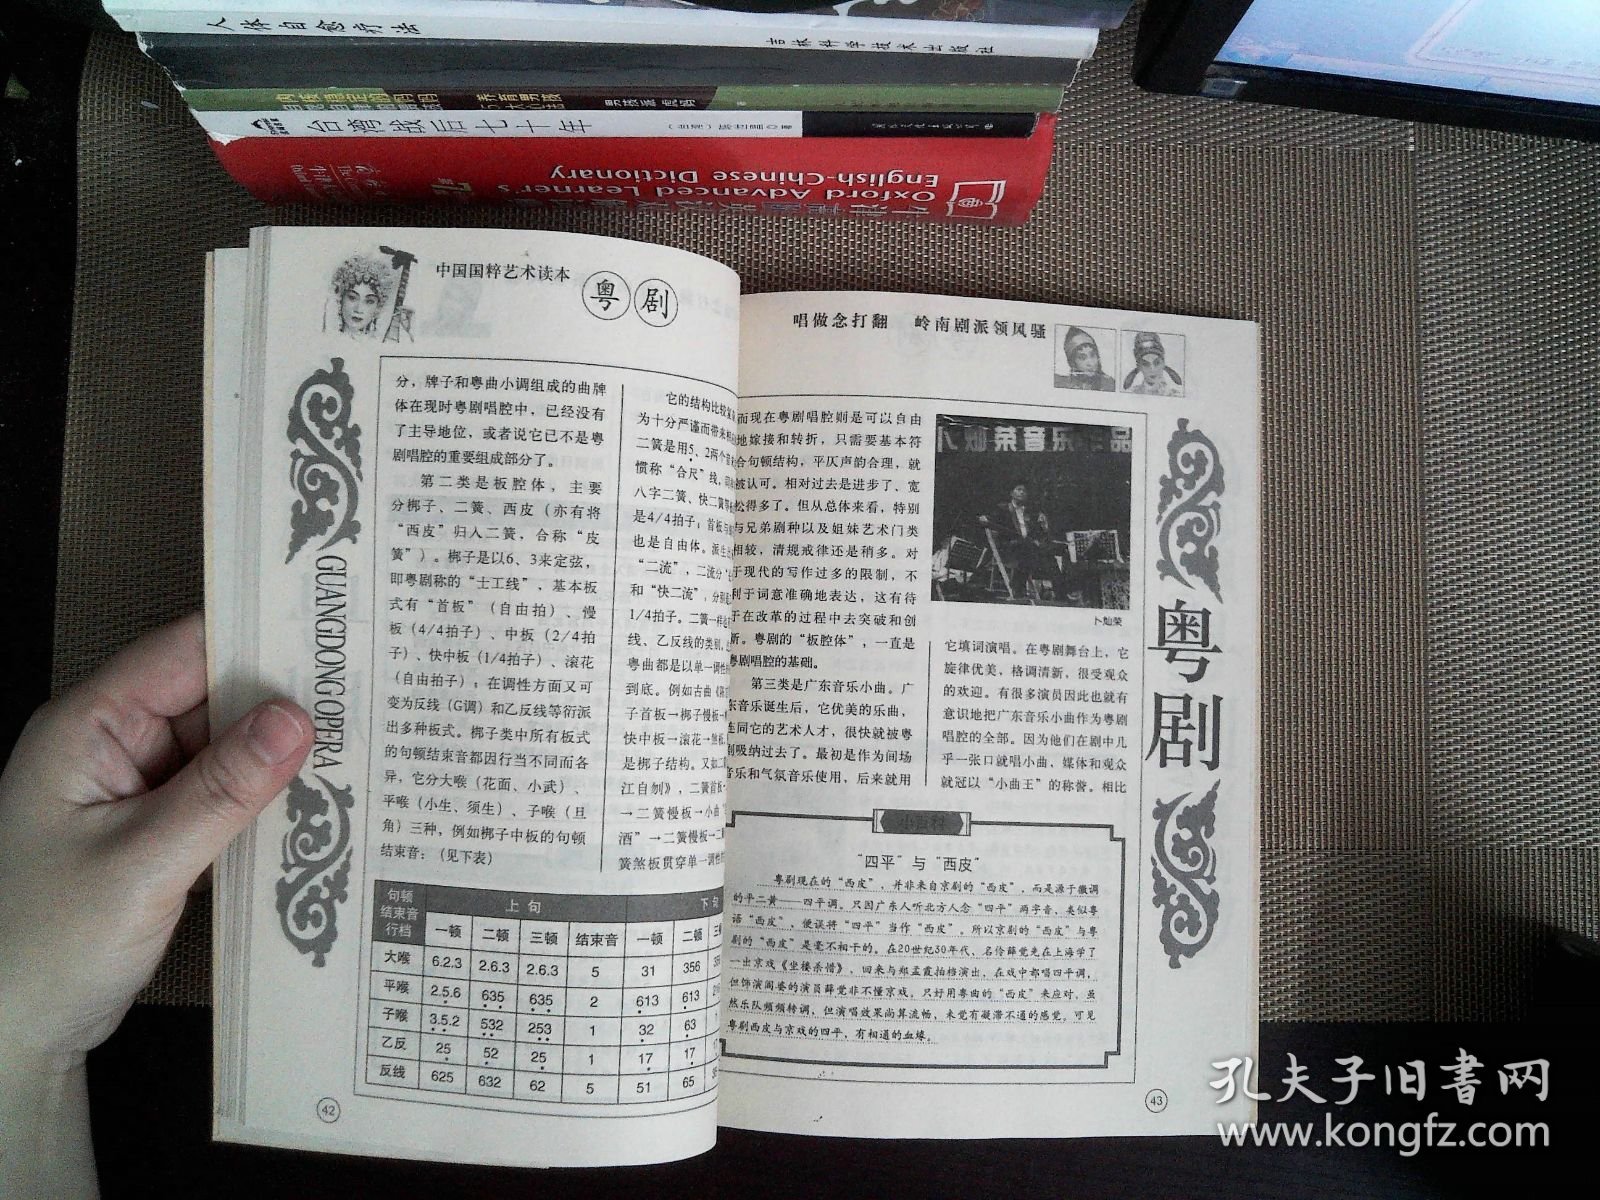 人体自愈疗法
吉林科学技术出版社
台湾战后七十年
Oxford Advanced Learner's
English-Chinese Dictionary
中国国粹艺术读本
粤剧
分，牌子和粤曲小调组成的曲牌
体在现时粤剧唱腔中，已经没有
了主导地位，或者说它已不是粤
剧唱腔的重要组成部分了。
第二类是板腔体，主要
分梆子、二簧、西皮（亦有将
“西皮”归入二簧，合称“皮
簧”）。梆子是以6、3来定弦，
即粤剧称的“士工线”，基本板
式有“首板”（自由拍）、慢
板（4/4拍子）、中板（2/4拍
子）、快中板（1/4拍子）、滚花
（自由拍子）；在调性方面又可
变为反线（G调）和乙反线等衍派
出多种板式。梆子类中所有板式
的句顿结束音都因行当不同而各
异，它分大喉（花面、小武）、
平喉（小生、须生）、子喉（旦
角）三种，例如梆子中板的句顿
结束音：（见下表）
它的结构比较
为十分严谨而带来
二簧是用5、2两个
惯称“合尺”线，
八字二簧、快二簧
是4/4拍子；首板与
也是自由体。派生
“二流”，二流分“
和“快二流”，分别
1/4拍子。二簧一样
线、乙反线的类别，
粤曲都是以单一调性
到底。例如古曲
子首板→梆子慢板→
快中板→滚花→煞板，
是梆子结构。又如
江自刎》，二簧首板
→二簧慢板→小曲
酒”→二簧慢板→二
簧煞板贯穿单一调性
句顿
结束音
行档
上句
下句
一顿 二顿 三顿 结束音 一顿 二顿
大喉 6.2.3 2.6.3 2.6.3 5 31 356
平喉 2.5.6 635 635 2 613 613
子喉 3.5.2 532 253 1 32 63
乙反 25 52 25 1 17 17
反线 625 632 62 5 51 65
GUANGDONG OPERA
42
唱做念打翻 岭南剧派领风骚
而现在粤剧唱腔则是可以自由
地嫁接和转折，只需要基本符
合句顿结构，平仄声的合理，就
被认可。相对过去是进步了、宽
松得多了。但从总体来看，特别
与兄弟剧种以及姐妹艺术门类
相较，清规戒律还是稍多。对
于现代的写作过多的限制，不
利于词意准确地表达，这有待
于在改革的过程中去突破和创
新。粤剧的“板腔体”，一直是
粤剧唱腔的基础。
第三类是广东音乐小曲。广
东音乐诞生后，它优美的乐曲，
连同它的艺术人才，很快就被粤
剧吸纳过去了。最初是作为间场
音乐和气氛音乐使用，后来就用
卜灿荣
它填词演唱。在粤剧舞台上，它
旋律优美，格调清新，很受观众
的欢迎。有很多演员因此也就有
意识地把广东音乐小曲作为粤剧
唱腔的全部。因为他们在剧中几
乎一张口就唱小曲，媒体和观众
就冠以“小曲王”的称誉。相比
小百科
“四平”与“西皮”
粤剧现在的“西皮”，并非来自京剧的“西皮”，而是源于徽调
的平二黄——四平调。只因广东人听北方人念“四平”两字音，类似粤
语“西皮”，便误将“四平”当作“西皮”。所以京剧的“西皮”与粤
剧的“西皮”是毫不相干的。在20世纪30年代，名伶薛觉先在上海学了
一出京戏《坐楼杀惜》，回来与郑孟霞拍档演出，在戏中都唱四平调，
但饰演阎婆的演员薛觉非不懂京戏，只好用粤曲的“西皮”来应对，虽
然乐队频频转调，但演唱效果尚算流畅，未觉有凝滞不通的感觉。可见
粤剧西皮与京戏的四平，有相通的血缘。
粤剧
43
孔夫子旧书网
www.kongfz.com